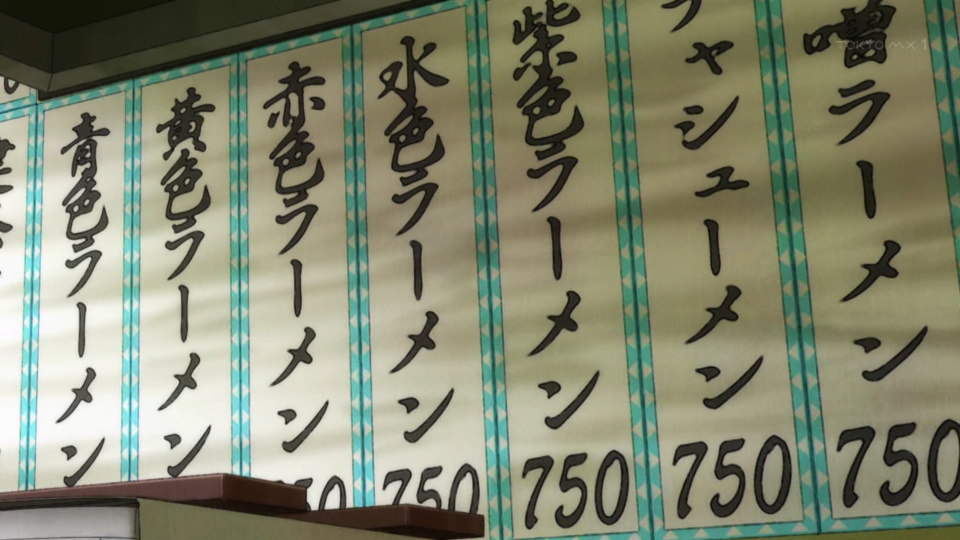 噌ラーメン
750
チャシューメン
750
紫色ラーメン
750
水色ラーメン
750
赤色ラーメン
750
黄色ラーメン
青色ラーメン
TOKYO MX 1